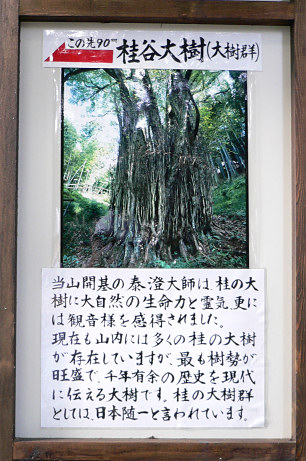 この先90m
桂谷大樹(大樹群)
当山開基の泰澄大師は、桂の大
樹に大自然の生命力と霊気、更に
は観音様を感得されました。
現在も山内には多くの桂の大樹
が存在していますが、最も樹勢が
旺盛で、千年有余の歴史を現代
に伝える大樹です。桂の大樹群
としては、日本随一と言われています。